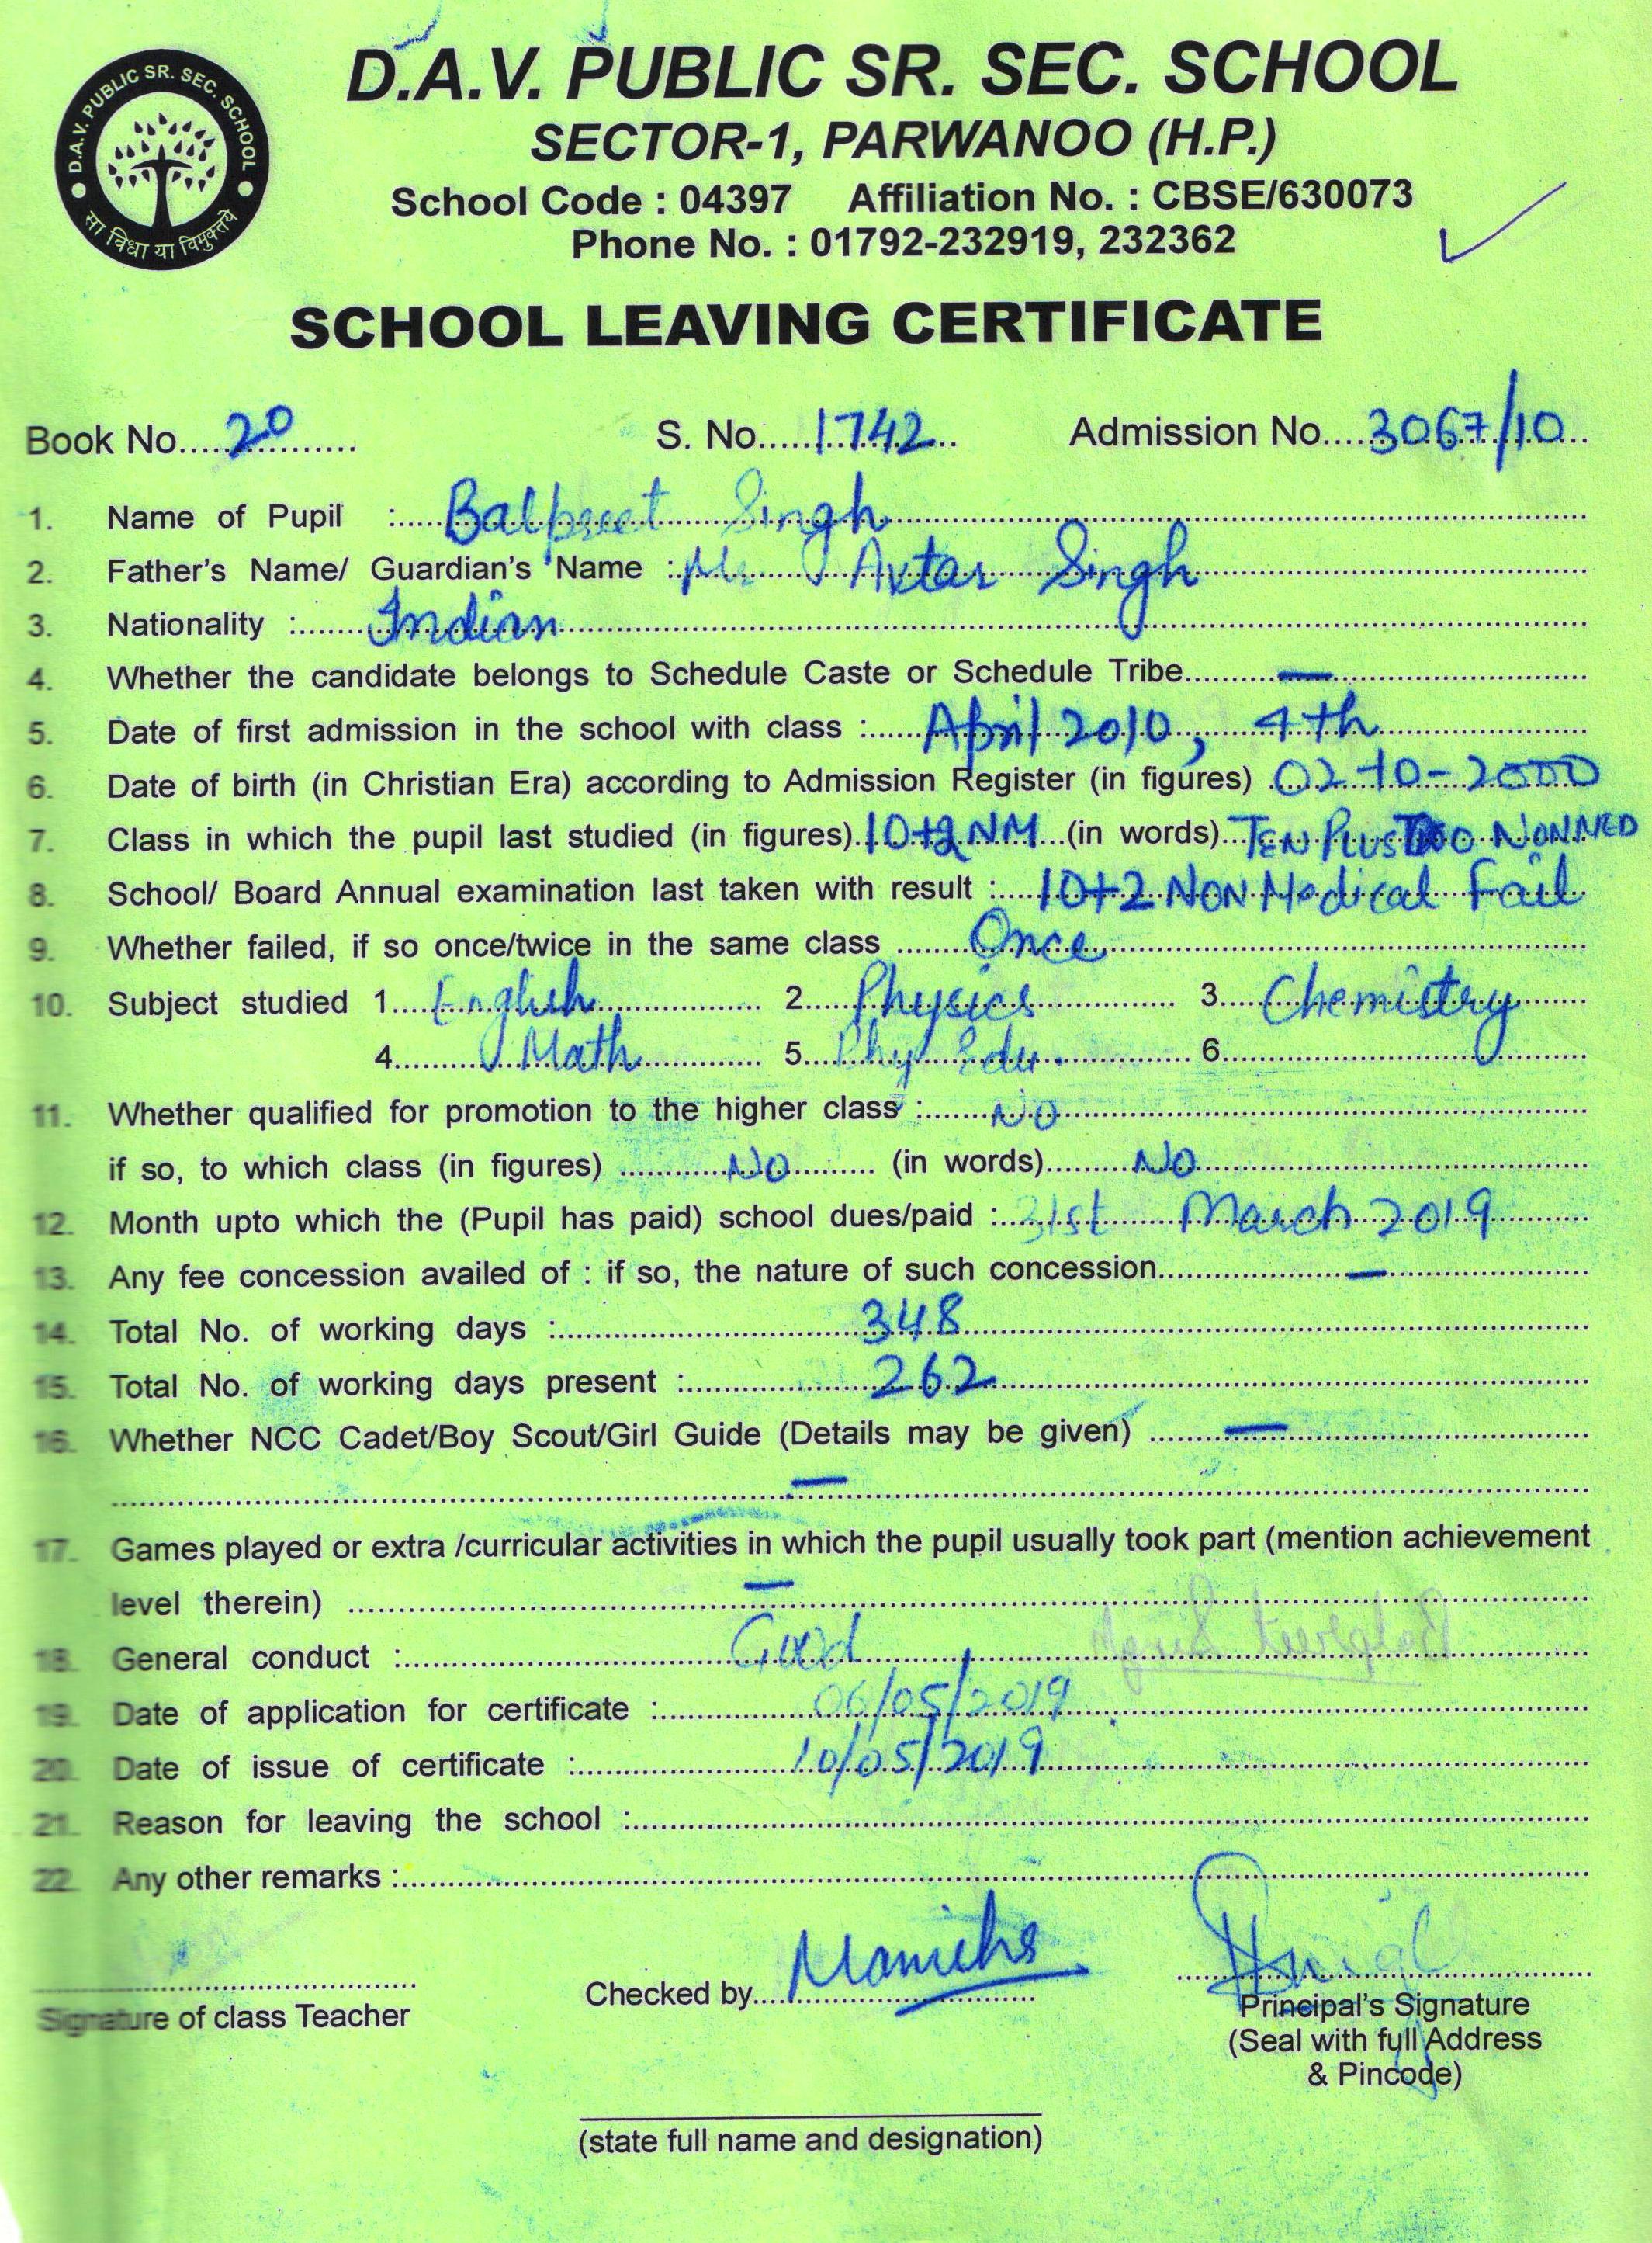 D.A.V. PUBLIC SR. SEC. SCHOOL
D.A.V. PUBLIC SR. SEC. SCHOOL
सा विद्या या विमुक्तये
SECTOR-1, PARWANOO (H.P.)
School Code : 04397 Affiliation No. : CBSE/630073
Phone No. : 01792-232919, 232362
SCHOOL LEAVING CERTIFICATE
Book No.....20............ S. No.....1742... Admission No....3067/10...
1. Name of Pupil :.....Balpreet Singh
2. Father's Name/ Guardian's Name :..Mr. Avtar Singh
3. Nationality :.......Indian
4. Whether the candidate belongs to Schedule Caste or Schedule Tribe..........—
5. Date of first admission in the school with class :......April 2010, 4th
6. Date of birth (in Christian Era) according to Admission Register (in figures) .02-10-2000
7. Class in which the pupil last studied (in figures).10+2 NM...(in words)..TEN PLUS TWO NONMED
8. School/ Board Annual examination last taken with result :....10+2 NON Medical Fail
9. Whether failed, if so once/twice in the same class ........Once
10. Subject studied 1....English 2.....Physics 3....Chemistry
4..........Math 5...Phy Edu. 6
11. Whether qualified for promotion to the higher class :.......No
if so, to which class (in figures) ...........No......... (in words).........No
12. Month upto which the (Pupil has paid) school dues/paid :..31st March 2019
13. Any fee concession availed of : if so, the nature of such concession..........—
14. Total No. of working days :..........348
15. Total No. of working days present :..........262
16. Whether NCC Cadet/Boy Scout/Girl Guide (Details may be given) ........—
—
17. Games played or extra /curricular activities in which the pupil usually took part (mention achievement
level therein) ..........—
18. General conduct :..........Good
19. Date of application for certificate :..........06/05/2019
20. Date of issue of certificate :..........10/05/2019
21. Reason for leaving the school :..........
22. Any other remarks :..........
Signature of class Teacher
Checked by....
Principal's Signature
(Seal with full Address
& Pincode)
(state full name and designation)